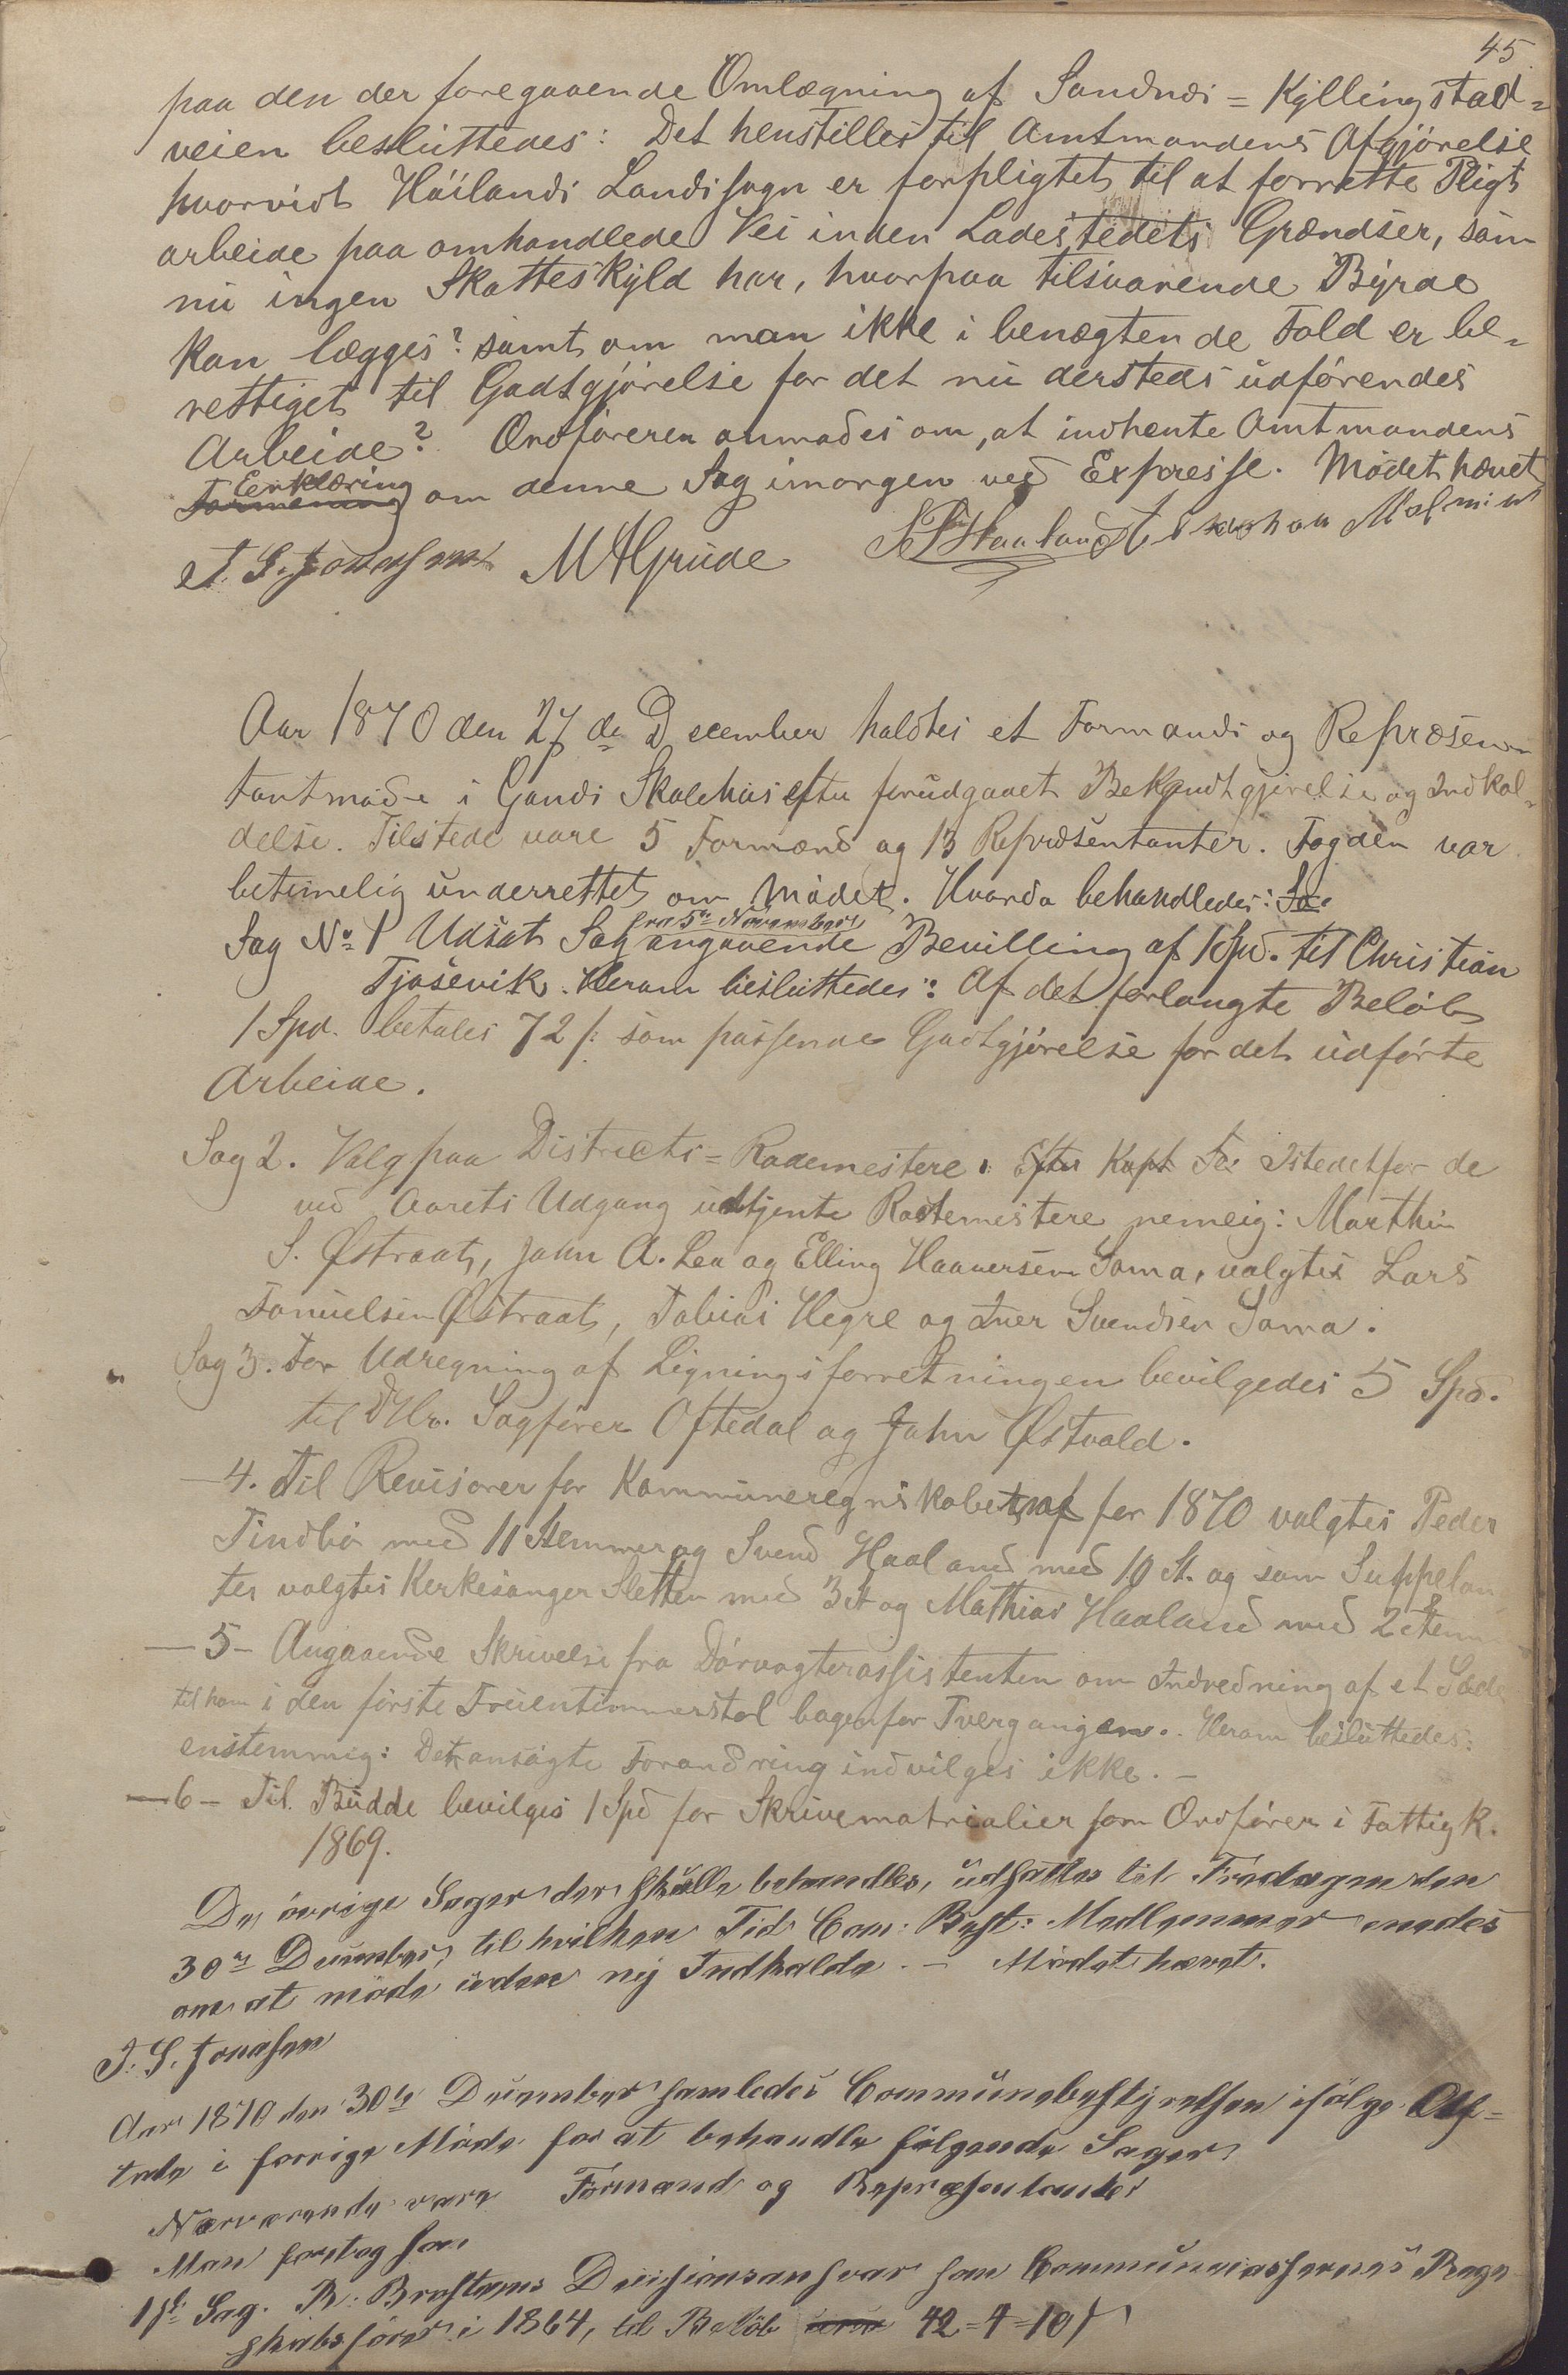 45
paa den der foregaaende Omlægning af Sandnæs=Kyllingstad=
veien besluttedes: Det henstilles til Amtmandens Afgjørelse
hvorvidt Høilands Landssogn er forpligtet til at forrette Pligt
arbeide paa omhandlede Vei inden Ladestedets Grændser, som
nu ingen Skatteskyld har, hvorpaa tilsvarende Byrde
kan lægges? samt om man ikke i benægtende Fald er be=
rettiget til Godtgjørelse for det nu dersteds udførendes
Arbeide? Ordføreren anmodes om, at indhente Amtmandens
Eerklæring
Formening om denne Sag imorgen ved Expresse. Mødet hævet
T. S. Jonassen M A Grude Haaland Malmin
Aar 1870 den 27de December holdtes et Formands og Repræsen=
tantmøde i Gands Skolehus efter forudgaaet Bekjendtgjørelse og Indkal=
delse. Tilstede vare 5 Formænd og 13 Repræsentanter. Fogden var
betimelig underrettet om Mødet. Hvorda behandledes: Sa
fra 5te November
Sag No 1 Udsat Sag angaaende Bevilling af 1 Spd. til Christian
Tjosevik. Herom besluttedes: Af det forlangte Beløb
1 Spd. betales 72 s: som passende Godtgjørelse for det udførte
Arbeide.
Sag 2. Valg paa Districts=Rodemestere. Efter Kapt Istedetfor de
ved Aarets Udgang udtjente Rodemestere nemlig: Marthin
S. Østraat, John A. Lea og Elling Haaversen Soma, valgtes Lars
Tonnielsen Østraat, Tobias Hegre og Iver Svendsen Soma.
Sag 3. For Udregning af Ligningsforretningen bevilgedes 5 Spd.
til Hr. Sagfører Oftedal og John Østvold.
—4. Til Revisorer for Kommuneregnskabet af for 1870 valgtes Peder
Tindbø med 11 Stemmer og Svend Haaland med 10 St. og som Supplean
ter valgtes Kerkesanger Sletten med 3 St og Mathias Haaland med 2 Stem
—5— Angaaende Skrivelse fra Dørvogterassistenten om Indredning af et Sæde
til ham i den første Fruentimmerstol bagenfor Tvergangen. Herom besluttedes:
enstemmig: Det ansøgte Forandring indvilges ikke. —
—6— Til Budde bevilges 1 Spd for Skrivematrialier som Ordfører i Fattigk.
1869.
De øvrige Sager der skulle behandles, udsattes til Fredagen den
30te December, til hvilken Tid Com: Best: Medlemmer anmodes
om at møde uden ny Indkaldelse. — Mødet hævet.
T. S. Jonassen
Aar 1870 den 30te December samledes Communebestyrelsen ifølge Af=
tale i forrige Møde for at behandle følgende Sager
Nærværende vare Formænd og Repræsentanter
Man foretog som
1ste Sag. B: Decisionsansvar som Communecassernes Regn
skabsfører i 1864, til Beløb 42=4=10 s